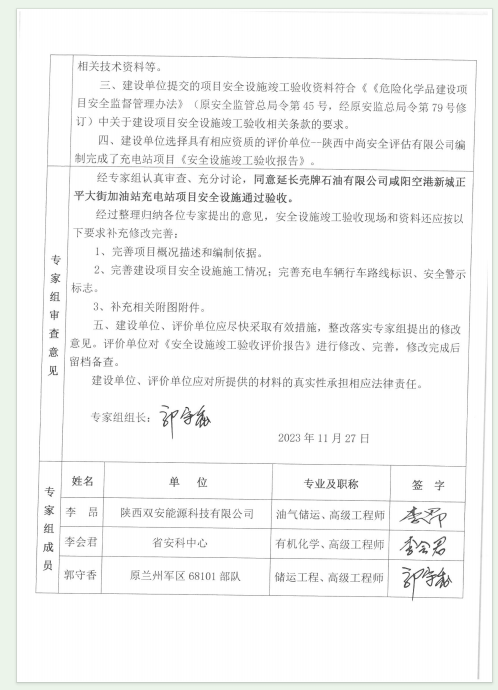 相关技术资料等。
三、建设单位提交的项目安全设施竣工验收资料符合《《危险化学品建设项
目安全监督管理办法》（原安全监管总局令第 45 号，经原安监总局令第 79 号修
订）中关于建设项目安全设施竣工验收相关条款的要求。
四、建设单位选择具有相应资质的评价单位--陕西中尚安全评估有限公司编
制完成了充电站项目《安全设施竣工验收报告》。
经专家组认真审查、充分讨论，同意延长壳牌石油有限公司咸阳空港新城正
平大街加油站充电站项目安全设施通过验收。
经过整理归纳各位专家提出的意见，安全设施竣工验收现场和资料还应按以
下要求补充修改完善：
1、完善项目概况描述和编制依据。
2、完善建设项目安全设施施工情况；完善充电车辆行车路线标识、安全警示
标志。
3、补充相关附图附件。
五、建设单位、评价单位应尽快采取有效措施，整改落实专家组提出的修改
意见。评价单位对《安全设施竣工验收评价报告》进行修改、完善，修改完成后
留档备查。
建设单位、评价单位应对所提供的材料的真实性承担相应法律责任。
专家组审查意见
专家组组长：郭守香
2023 年 11 月 27 日
专家组成员
姓名 单 位 专业及职称 签 字
李 昂 陕西双安能源科技有限公司 油气储运、高级工程师 李昂
李会君 省安科中心 有机化学、高级工程师 李会君
郭守香 原兰州军区 68101 部队 储运工程、高级工程师 郭守香